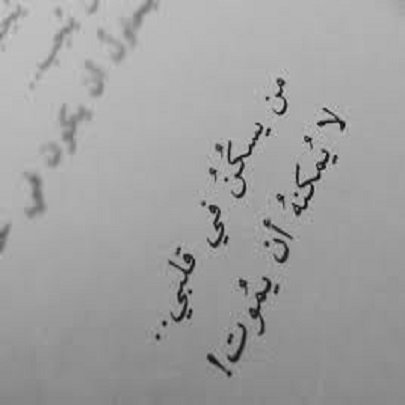 من يسكُنُ في قلبي..
لا يُمكنهُ أن يمُوت!